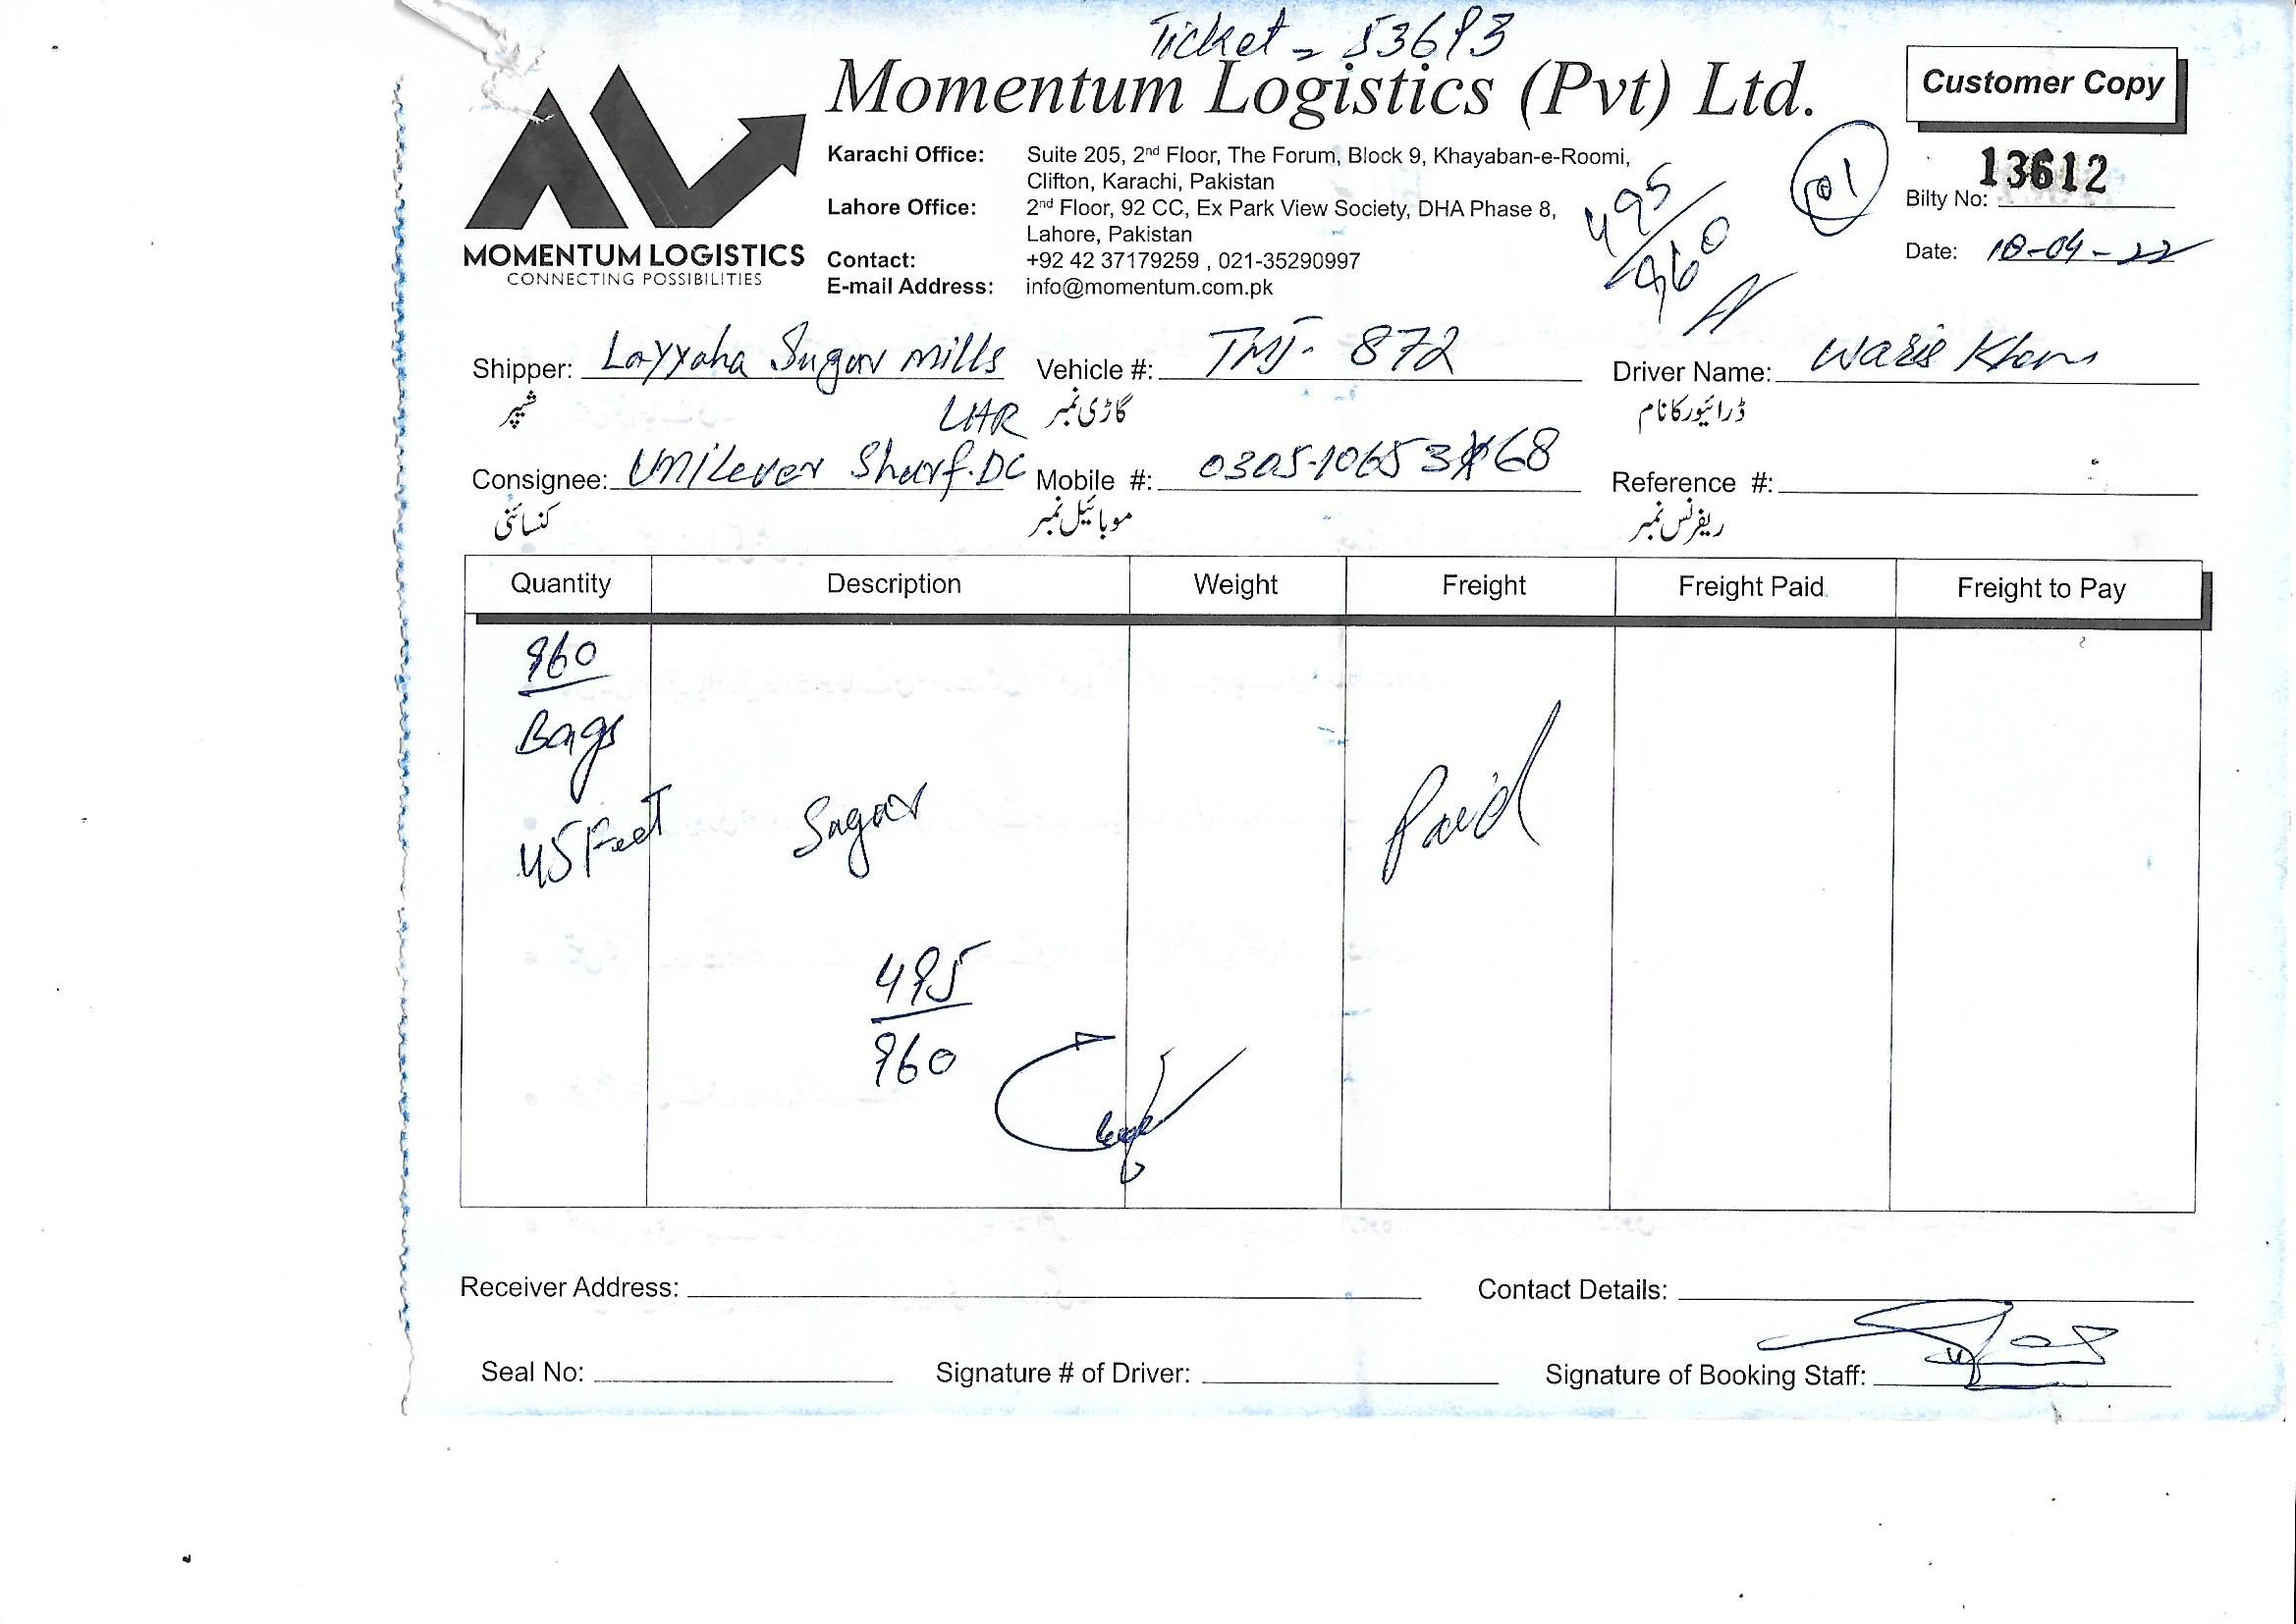 Ticket = 53693
Momentum Logistics (Pvt) Ltd.
Customer Copy
MOMENTUM LOGISTICS
CONNECTING POSSIBILITIES
Karachi Office: Suite 205, 2nd Floor, The Forum, Block 9, Khayaban-e-Roomi,
Clifton, Karachi, Pakistan
Lahore Office: 2nd Floor, 92 CC, Ex Park View Society, DHA Phase 8,
Lahore, Pakistan
Contact: +92 42 37179259 , 021-35290997
E-mail Address: info@momentum.com.pk
495
960
01
Bilty No: 13612
Date: 18-04-22
Shipper: Layyaha Sugar mills Vehicle #: TMJ- 872 Driver Name: Waris Khan
شپپر گاڑی نمبر ڈرائیور کا نام
LHR
Consignee: Unilever Sharf.DC Mobile #: 0305-1065368 Reference #:
کنسائنی موبائیل نمبر ریفرنس نمبر
Quantity Description Weight Freight Freight Paid Freight to Pay
960
Bags
45 Feet Sugar Paid
495
960
Receiver Address: Contact Details:
Seal No: Signature # of Driver: Signature of Booking Staff: